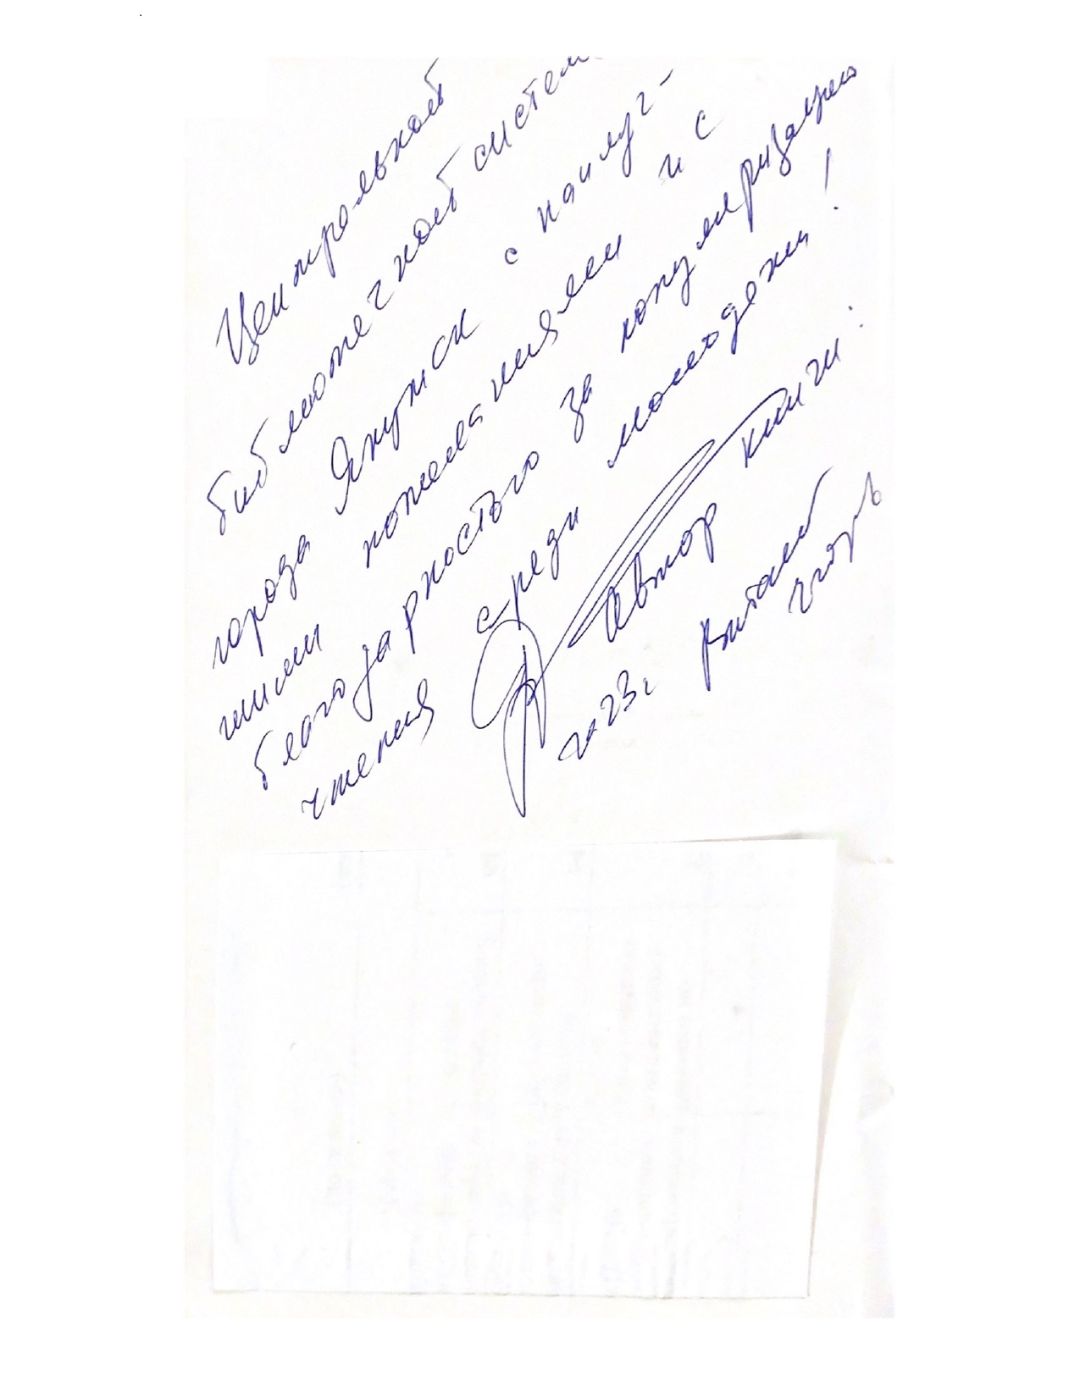 Центральной
библиотечной системе
города Якутск с наилуч-
шими пожеланиями и с
благодарностью за популяризацию
чтения среди молодежи!
Автор книги:
2023г Виталий
Игорь